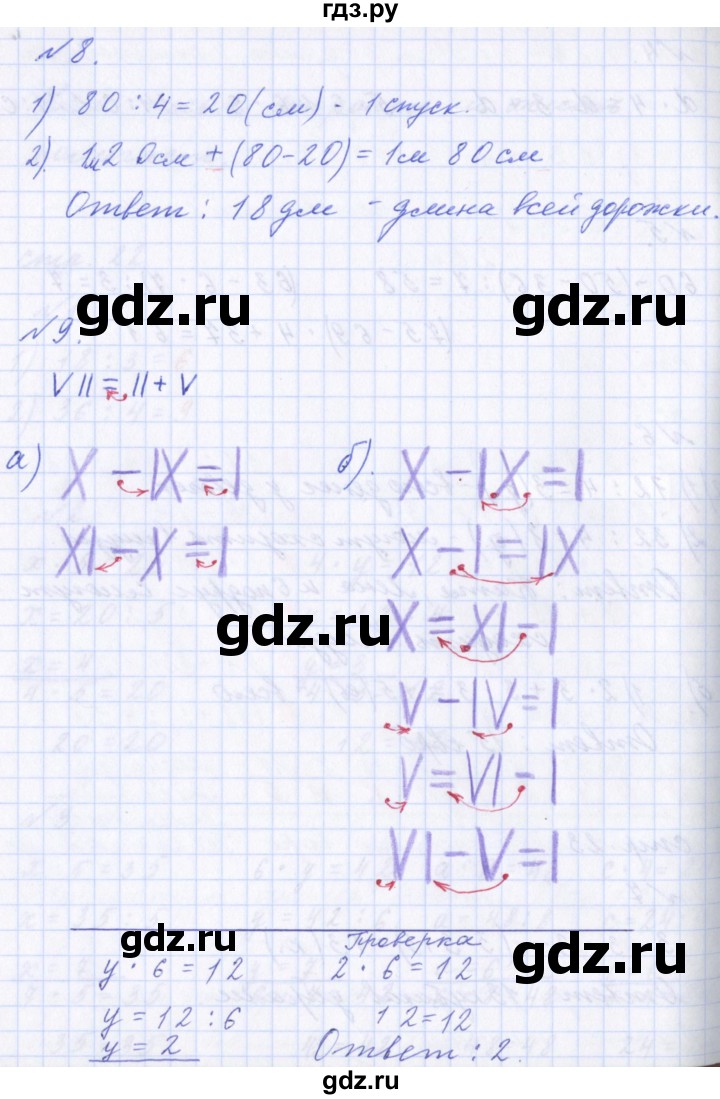 гдз.ру
№8.
1) 80 : 4 = 20 (см) - 1 спуск.
2) 1м 20см + (80-20) = 1м 80см
Ответ: 18дм - длина всей дорожки.
gdz.ru gdz.ru
№9.
VII = II + V
а) X - IX = I
XI - X = I
б). X - IX = I
X - I = IX
X = XI - I
V - IV = I
V = VI - I
VI - V = I
gdz.ru gdz.ru
Проверка
y · 6 = 12 2 · 6 = 12
y = 12 : 6 12 = 12
y = 2 Ответ: 2.
gdz.ru gdz.ru
gdz.ru